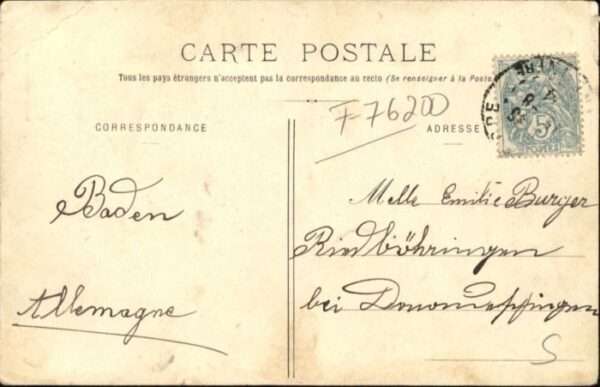 CARTE POSTALE
Tous les pays étrangers n'acceptent pas la correspondance au recto (Se renseigner à la Poste
F-76200
CORRESPONDANCE
ADRESSE
Baden
Allemagne
Melle Emilie Burger
Riedböhringen
bei Donaueschingen
5
S